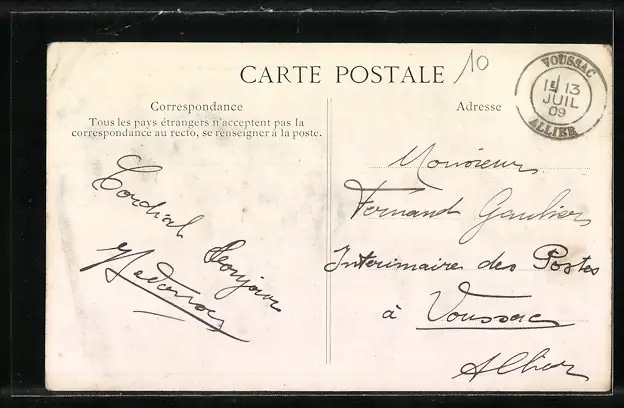 CARTE POSTALE
10
VOUSSAC
1E 13
JUIL
09
ALLIER
Correspondance
Tous les pays étrangers n'acceptent pas la
correspondance au recto, se renseigner à la poste.
Cordial Bonjour
Adresse
Monsieur
Fernand Gaulier
Intérimaire des Postes
à Voussac
Allier